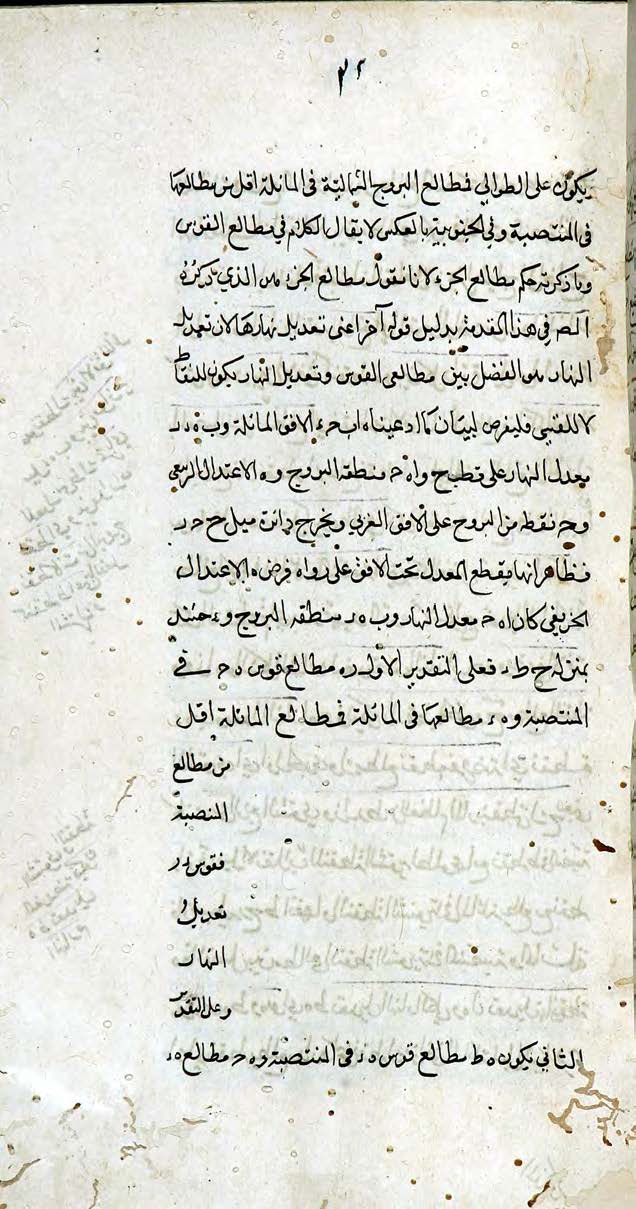 ٣٢
يكون على الطوالي فمطالع البروج الشمالية في المائلة اقل من مطالعها
في المنتصبة وفي الجنوبية بالعكس لا يقال الكلام في مطالع القوس
وما ذكرته حكم مطالع الجزء لانا نقول مطالع الجزء هو الذي ذكره
المص في هذا المقدمة بدليل قوله آخرا عنى تعديل نهارها لان تعديل
النهار هو الفضل بين مطالعى القوس وتعديل النهار يكون للنقاط
لا للقسي فليفرض لبيان ما ادعيناه اب ح ء الافق المائلة وب ه ء ر
معدل النهار على قطب ح واه ح منطقة البروج و ه الاعتدال الربيعى
وح نقطة من البروج على الافق الغربي ويخرج دائرة ميل ح ح ر
فظاهر انها يقطع المعدل تحت الافق على ر واه فرض ه الاعتدال
الخريفي كان اه ح معدل النهار وب ه ر منطقة البروج و ء حينئذ
بمنزلة ح ط ء فعلى التقدير الاول ر ه مطالع قوس ه ح في
المنتصبة و ه ء مطالعها في المائلة فمطالع المائلة اقل
من مطالع
المنتصبة
فقوس ء ر
تعديل
النهار
وعلى التقدير
الثاني يكون ه ط مطالع قوس ه ء في المنتصبة و ه ح مطالع ه ء